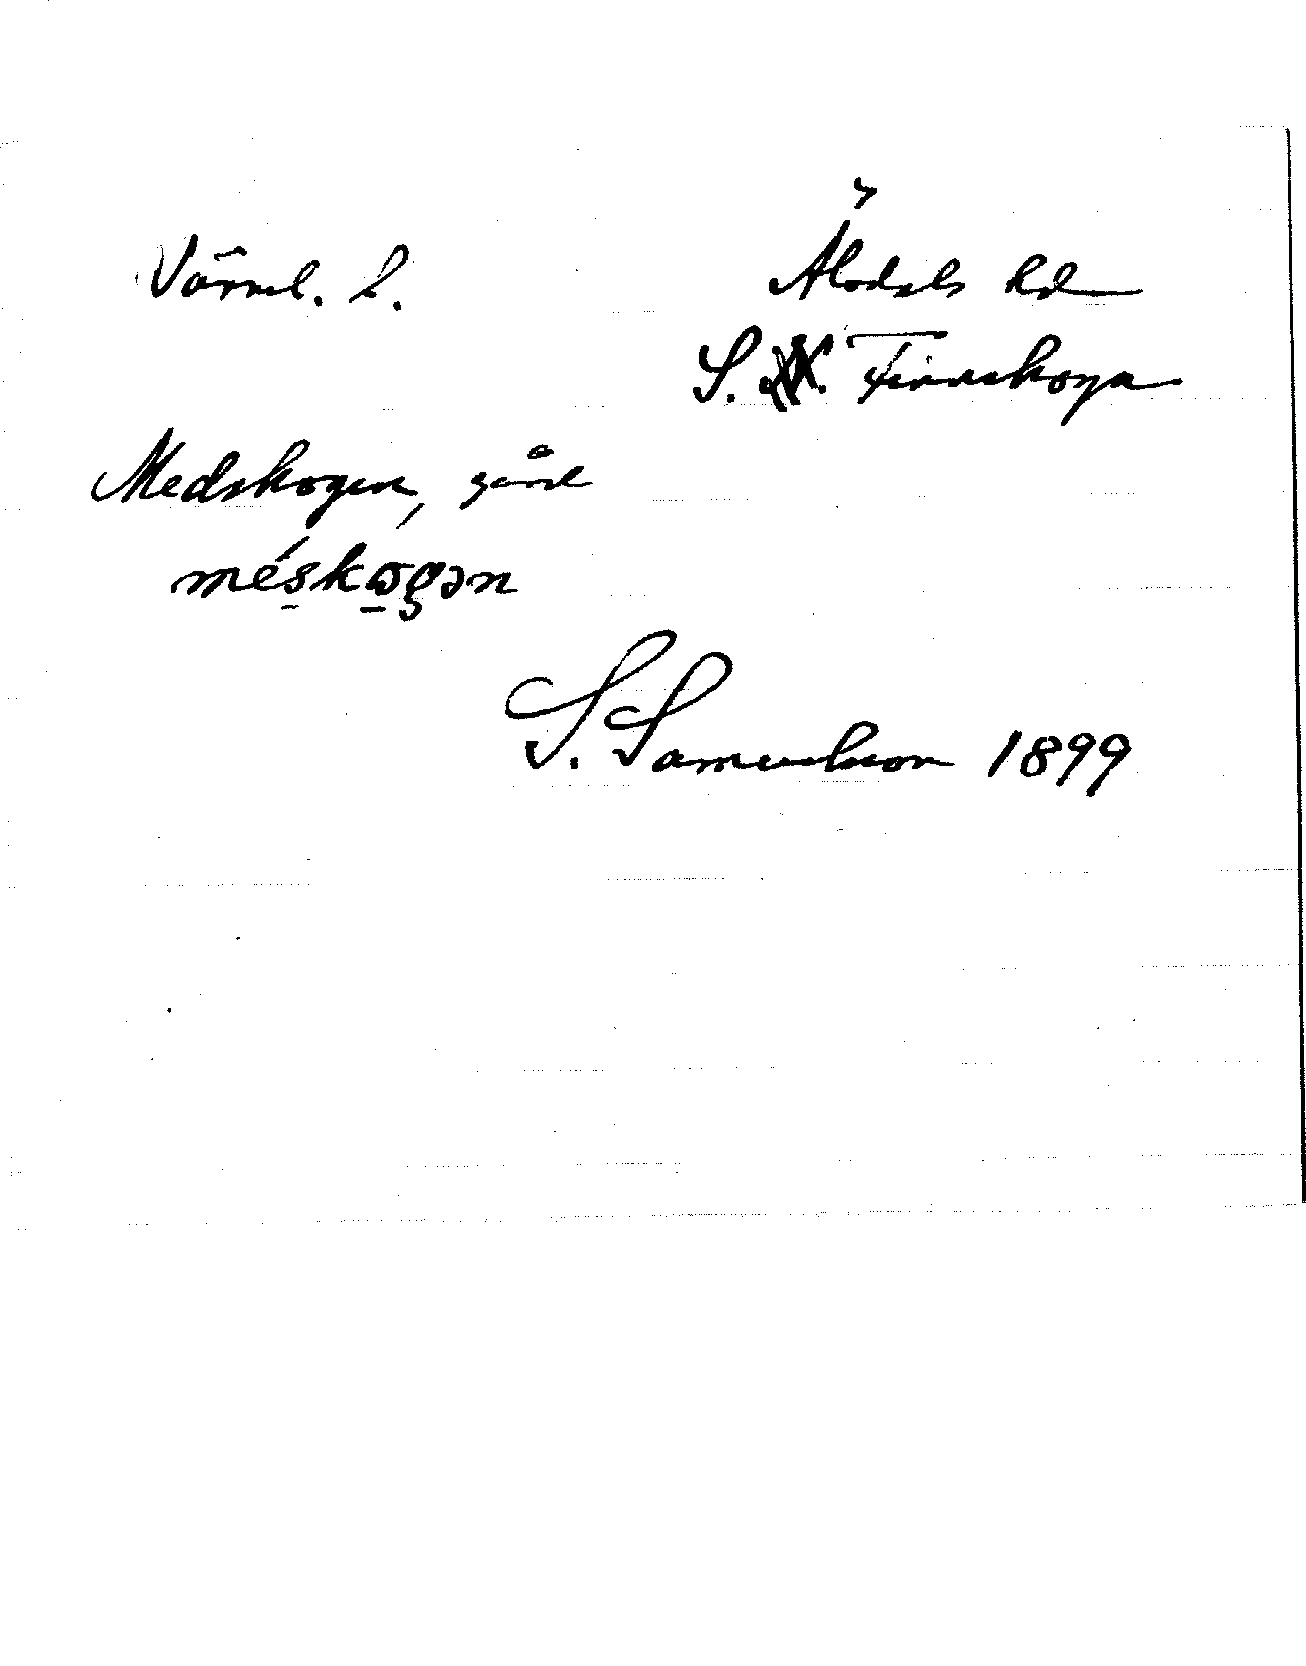 Värml. l.
Älvdals hd
S. Finnskoga
Medskogen, gård
méskogən
S. Samuelsson 1899